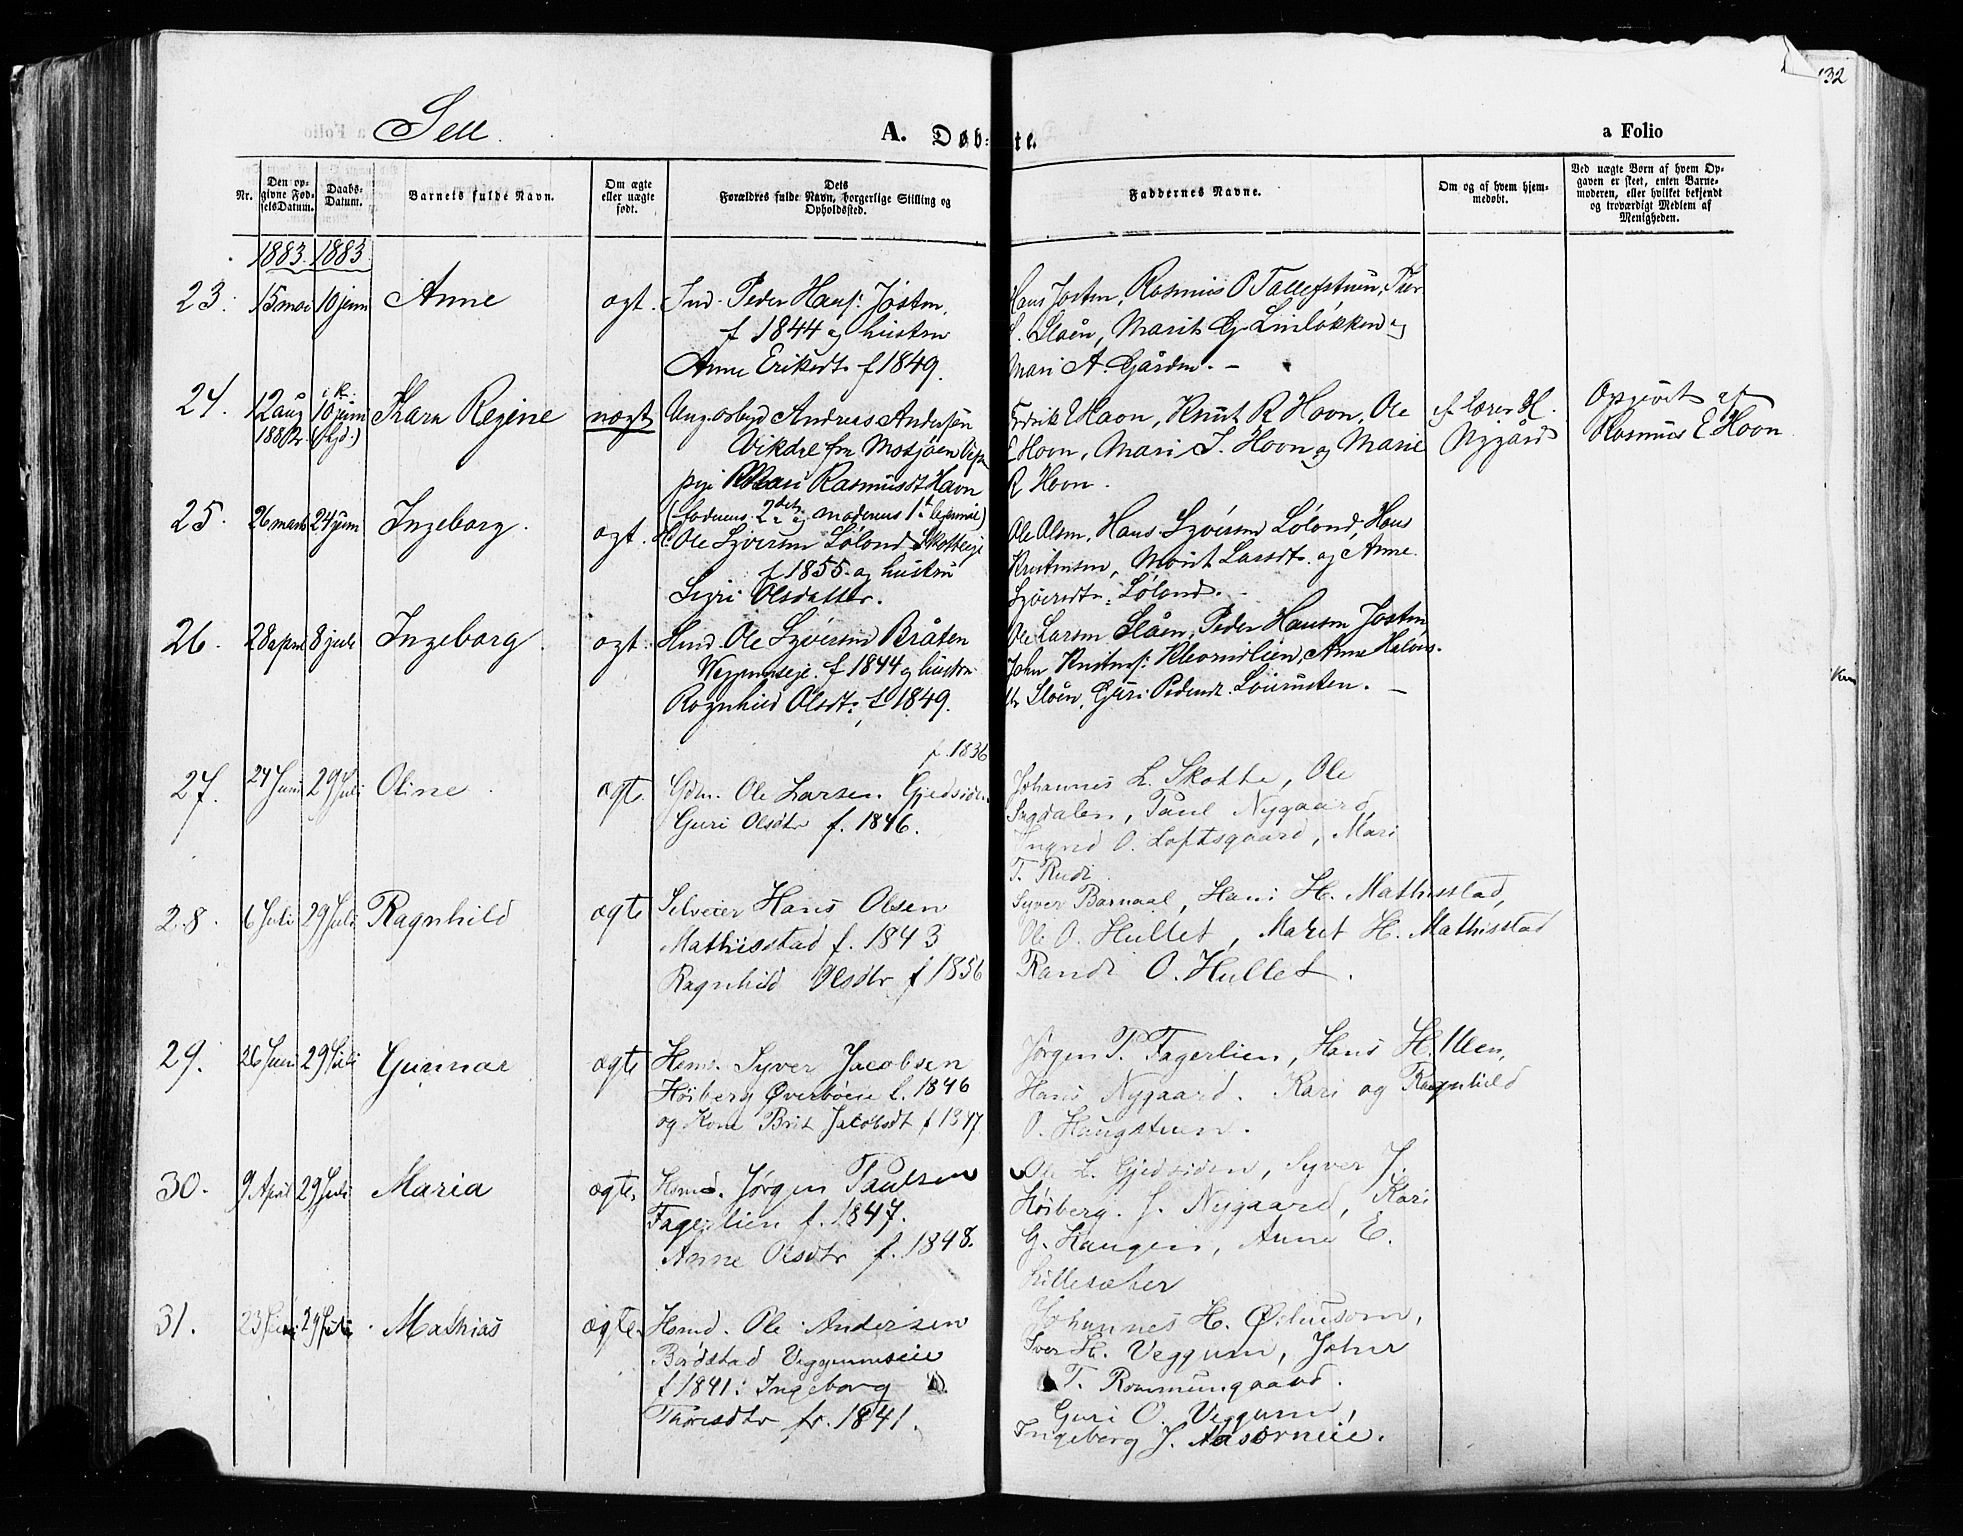 132
Sell.
A. Døb: te.
a Folio
Nr.
Den opgivne FødselsDatum.
Daabs-Datum.
Barnets fulde Navn.
Om ægte eller uægte født.
Dets Forældres fulde Navn, borgerlige Stilling og Opholdssted.
Faddernes Navne.
Om og af hvem hjemmedøbt.
Ved uægte Børn af hvem Opgaven er skeet, enten Barnemoderen, eller hvilket bekjendt og troværdigt Medlem af Menigheden.
1883. 1883.
23. 15 mai 10 juni Anne ogt. Ind. Peder Hans: Jostm,
f 1844 og hustru
Anne Eriksdt. f 1849.
Hans Jostm, Rasmus O Tollefstuen, Thor
Slåen, Marit G Linløkken og
Mari A. Gården. —
24. 12 aug 10 juni Karn Regine uægt Ungarbd Andreas Andersen
Vikdal fra Mosjøen
Mari Rasmusdt Havn
(faderens 2det og moderens 1t legermål)
Fredrik E Havn, Knut R Hovn, Ole
E Hovn, Mari S. Hovn og Marie
R Hovn.
af lærer H.
Nygård
Opgivet af
Rasmus E Hovn
25. 26 marts 24 juni Ingeborg. ogt. Ole Syversm Lølond Skotteeje
f 1855 og hustru
Sigri Olsdatter.
Ole Olsm, Hans Syversm Lølond, Hans
Kristensen, Marit Larsdt. og Anne
Syversdt. Lølond. —
26. 28 april 8 juli Ingeborg ogt. Hmd. Ole Syversm Bråten
Veggumseje. f 1844 og hustru
Rognhild Olsdt. f 1849.
Ole Larsm Slåen, Peder Hansm Jostm,
John Kristens: Kleivrudlien, Anne Halvors-
dt Slåen, Guri Pedersdt. Lourusten. —
27. 24 Juni 29 Juli Oline. ægte. f. 1836
Gdm. Ole Larsen Gjedsiden
Guri Olsdtr f. 1846.
Johannes L. Skotte, Ole
Sagdalen, Paul Nygaard,
Ingrid O. Loftsgaard, Mari
T. Rudi.
28. 6 Juli 29 Juli Ragnhild ægte Selveier Hans Olsen
Mathisstad f. 1843
Ragnhild Olsdtr f 1856
Syver Barnaal, Hans H. Mathisstad,
Ole O. Hullet, Maret H. Mathisstad
Randi O. Hullet.
29. 26 Juni 29 Juli Gunnar ægte Hsmd. Syver Jacobsen
Høiberg Øverbøeie f. 1846
og Kone Brit Jacobsdt f 1847
Jørgen P. Fagerlien, Hans H. Ulen,
Hans Nygaard. Kari og Ragnhild
O. Haugstuen.
30. 9 April 29 Juli Maria ægte. Hsmd. Jørgen Paulsen
Fagerlien f. 1847.
Anne Olsdtr f. 1848.
Ole L. Gjedsiden, Syver J.
Høiberg. J. Nygaard, Kari
G. Haugen, Anne E.
Lillesæter
31. 23 Juni 29 Juli Mathias ægte. Hsmd. Ole Andersen
Bårdstad Veggumseie
f 1841: Ingeborg
Thoresdtr fr. 1841.
Johannes H. Øihusom,
Iver H. Veggum, Johns
T. Rommungaard.
Guri O. Veggum,
Ingeborg J. Aasørneie.